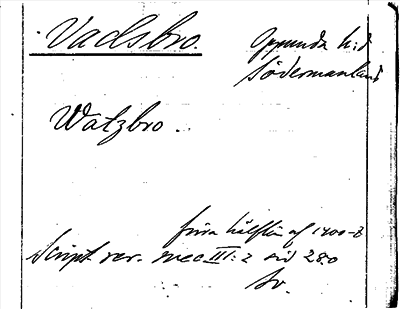 Vadsbro.
Oppunda h:d
Södermanland
Watzbro.
förra hälften af 1400-t
Script. rer. svec. III: 2 sid 280
Sv.